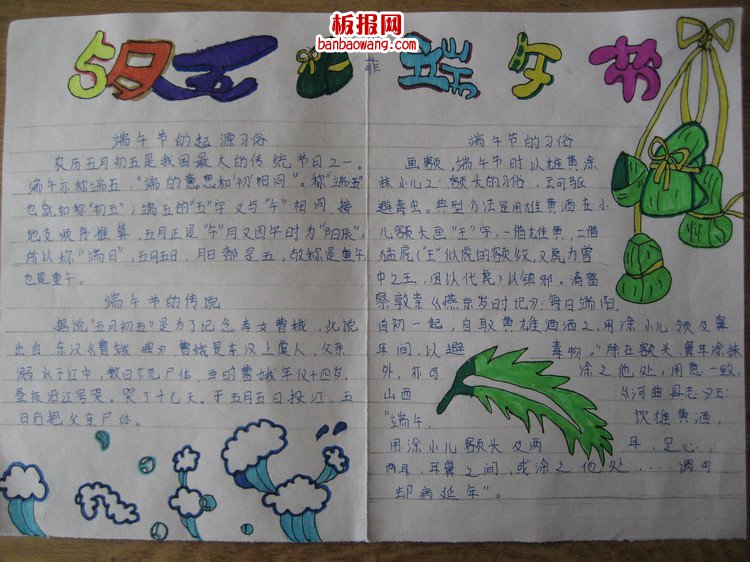 板报网
banbaowang.com
5月五
端午节
菲
端午节的起源习俗
农历五月初五是我国最大的传统节日之一。
端午亦称端五,“端的意思和‘初’相同”。称“端五”
也就如称“初五”;端五的“五”字又与“午”相同 接
地支顺序推算,五月正是“午”月又因午时为“阳辰”,
所以称“端日”,五月五日,月日都是五,故称是重午
也是重午。
端午节的传说
据说“五月初五”是为了记念孝女曹娥,此说
出自 东汉《曹娥 碑》,曹娥是东汉上虞人,父亲
溺水于江中,数日不见尸体,当时曹娥年仅十四岁,
昼夜沿江号哭,哭了十七天。于五月五日投江,五
日后抱父亲尸体。
端午节的习俗
画额,端午节时以雄黄涂
抹小儿之额头的习俗,云可驱
避毒虫。典型方法是用雄黄酒在小
儿额头画“王”字,一借雄黄,二借
猛虎(“王”似虎的额纹,又虎为兽
中之王,因以代虎)以镇邪。清富
察敦崇《燕京岁时记》:每日端阳,
自初一起,自取黄雄酒洒之,用涂小儿领及鼻
耳间,以避 毒物。”除在额头、鼻耳涂抹
外,亦可 涂之他处,用意一致.
山西 《河曲县志》云:
“端午, 饮雄黄酒,
用涂小儿额头及两 耳,足心,
两耳、耳鼻之间,或涂之他处……谓可
却病延年”。